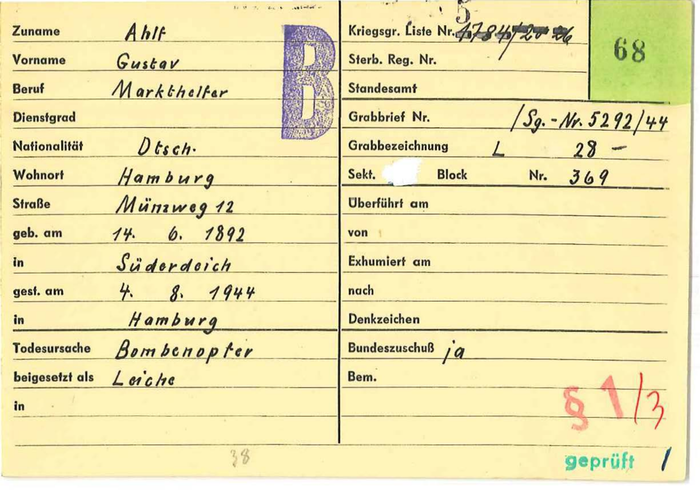 Zuname Ahlf
Vorname Gustav
Beruf Markthelfer
Dienstgrad
Nationalität Dtsch.
Wohnort Hamburg
Straße Münzweg 12
geb. am 14. 6. 1892
in Süderdeich
gest. am 4. 8. 1944
in Hamburg
Todesursache Bombenopfer
beigesetzt als Leiche
in
B
5
Kriegsgr. Liste Nr.
Sterb. Reg. Nr.
Standesamt
Grabbrief Nr. /Sg.-Nr. 5292/44
Grabbezeichnung L 28 –
Sekt. Block Nr. 369
Überführt am
von
Exhumiert am
nach
Denkzeichen
Bundeszuschuß ja
Bem.
68
§ 1/3
geprüft
38